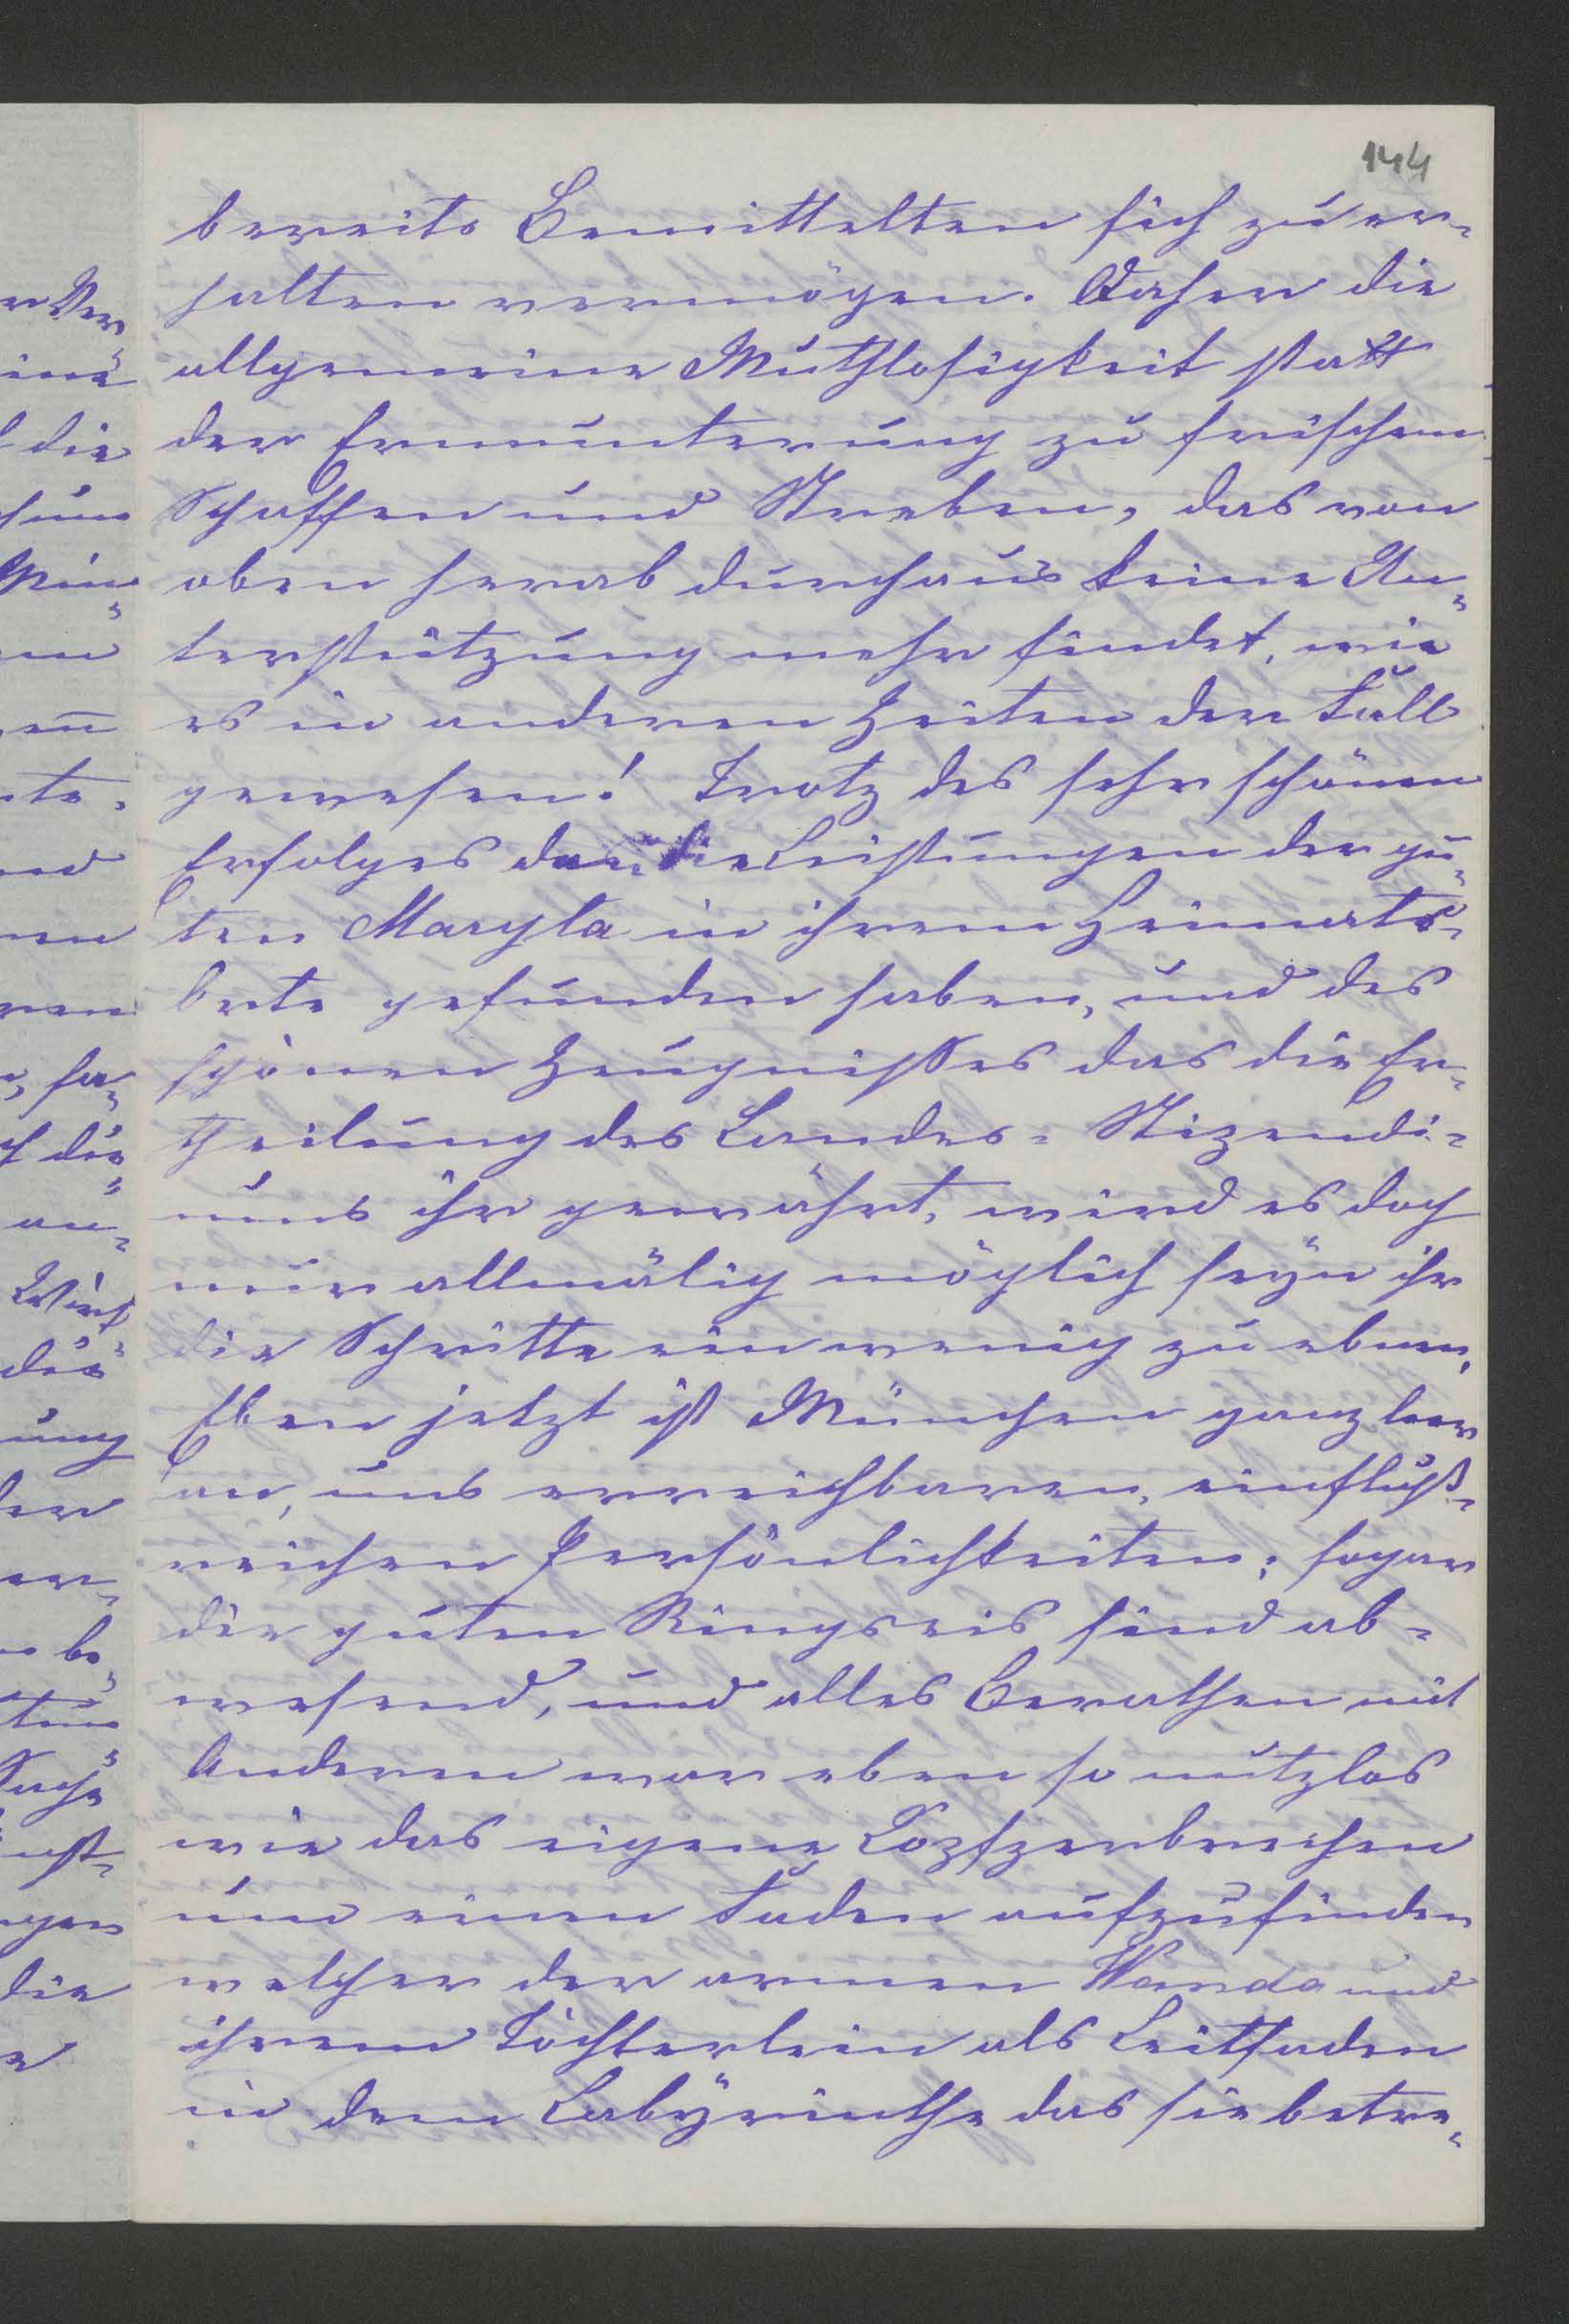 144
bereits Bemittelten sich zu er-
halten vermögen. Daher die
allgemeine Muthlosigkeit statt
der Ermunterung zu frischem
Schaffen und Streben, das von
oben herab durchaus keine Un-
terstützung mehr findet, wie
es in anderen Zeiten der Fall
gewesen! Trotz des sehr schönen
Erfolges den die Leistungen der gu-
ten Maryla in ihrem Heimats-
Orte gefunden haben, und des
schönen Zeugnisses das die Er-
theilung des Landes-Stipendi-
ums ihr gewährt, wird es doch
nur allmälig möglich seyn ihr
die Schritte ein wenig zu ebnen.
Eben jetzt ist München ganz leer
an, uns erreichbaren, einfluß-
reichen Persönlichkeiten; sogar
die guten Ringseis sind ab-
wesend, und alles Berathen mit
Anderen war eben so nutzlos
wie das eigene Kopfzerbrechen
um einen Faden aufzufinden
welcher der armen Wanda und
ihrem Töchterlein als Leitfaden
in dem Labyrinthe das sie betre-